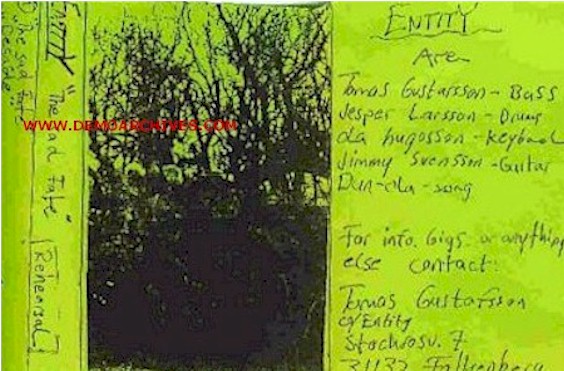 ENTITY "The sad Fate" [Rehearsal]
① The sad Fate
WWW.DEMOARCHIVES.COM
ENTITY
Are
Tomas Gustafsson - Bass
Jesper Larsson - Drums
Ola hugosson - keyboard
Jimmy Svensson - Guitar
Dan-ola - song
For info. Gigs. or anything
else contact:
Tomas Gustafsson
c/o Entity
7
31132 Falkenberg